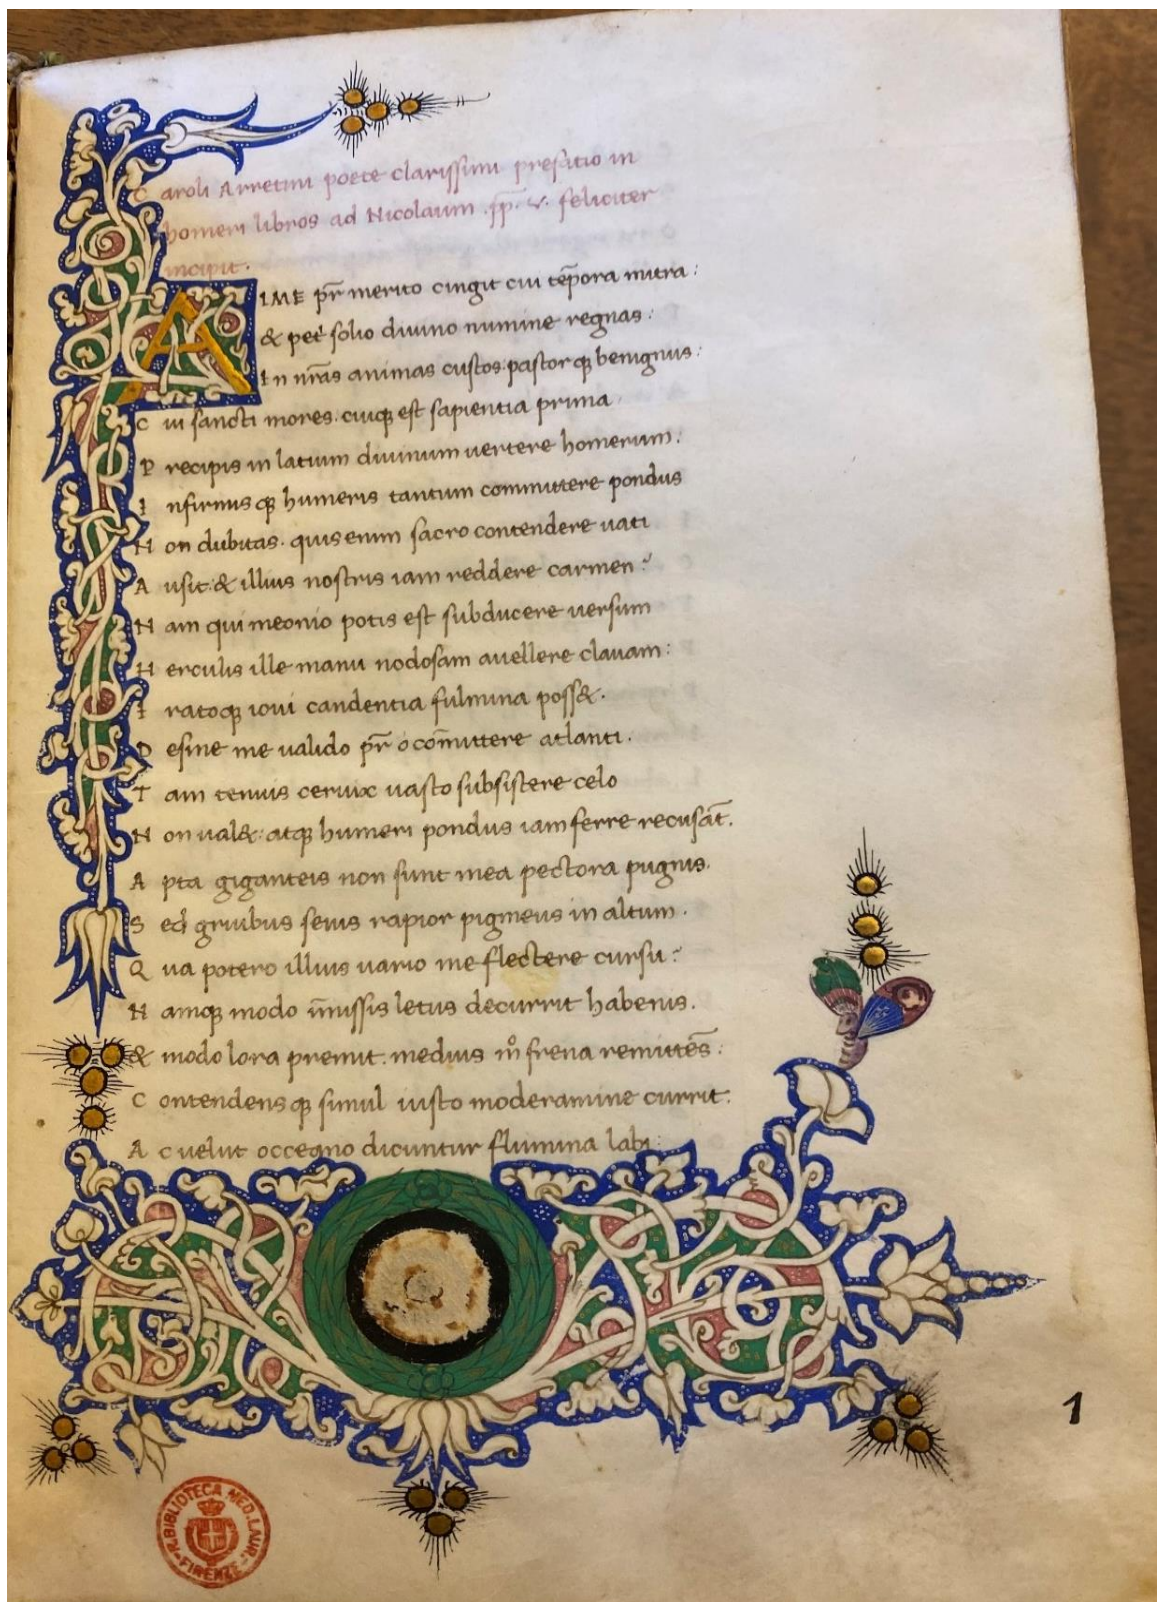 Caroli Arretini poete clarissimi prefatio in
homeri libros ad Nicolaum .pp̄. v. feliciter
incipit.
AIME pr̄ merito cingit cui tēpora mitra:
& petˀ solio diuino numine regnas:
In nr̄as animas custos: pastorqꝫ benignus:
Cui sancti mores. cuiqꝫ est sapientia prima
Precipis in latium diuinum uertere homerum:
Infirmisqꝫ humeris tantum committere pondus
Non dubitas. quis enim sacro contendere uati
Ausit: & illius nostris iam reddere carmen?
Nam qui meonio potis est subducere uersum
Herculis ille manu nodosam auellere clauam:
Iratoqꝫ ioui candentia fulmina poss&.
Desine me ualido pr̄ o com̄ittere atlanti.
Tam tenuis ceruix uasto subsistere celo
Non ual&: atqꝫ humeri pondus iam ferre recusāt.
Apta giganteis non sunt mea pectora pugnis.
Sed gruibus seuis rapior pigmeus in altum.
Qua potero illius uario me flectere cursu?
Namqꝫ modo īmissis letus decurrit habenis.
& modo lora premit. medius mº frena remittēs:
Contendensqꝫ simul iusto moderamine currit:
Ac uelut occeano dicuntur flumina labi:
1
R. BIBLIOTECA MED. LAUR.
FIRENZE